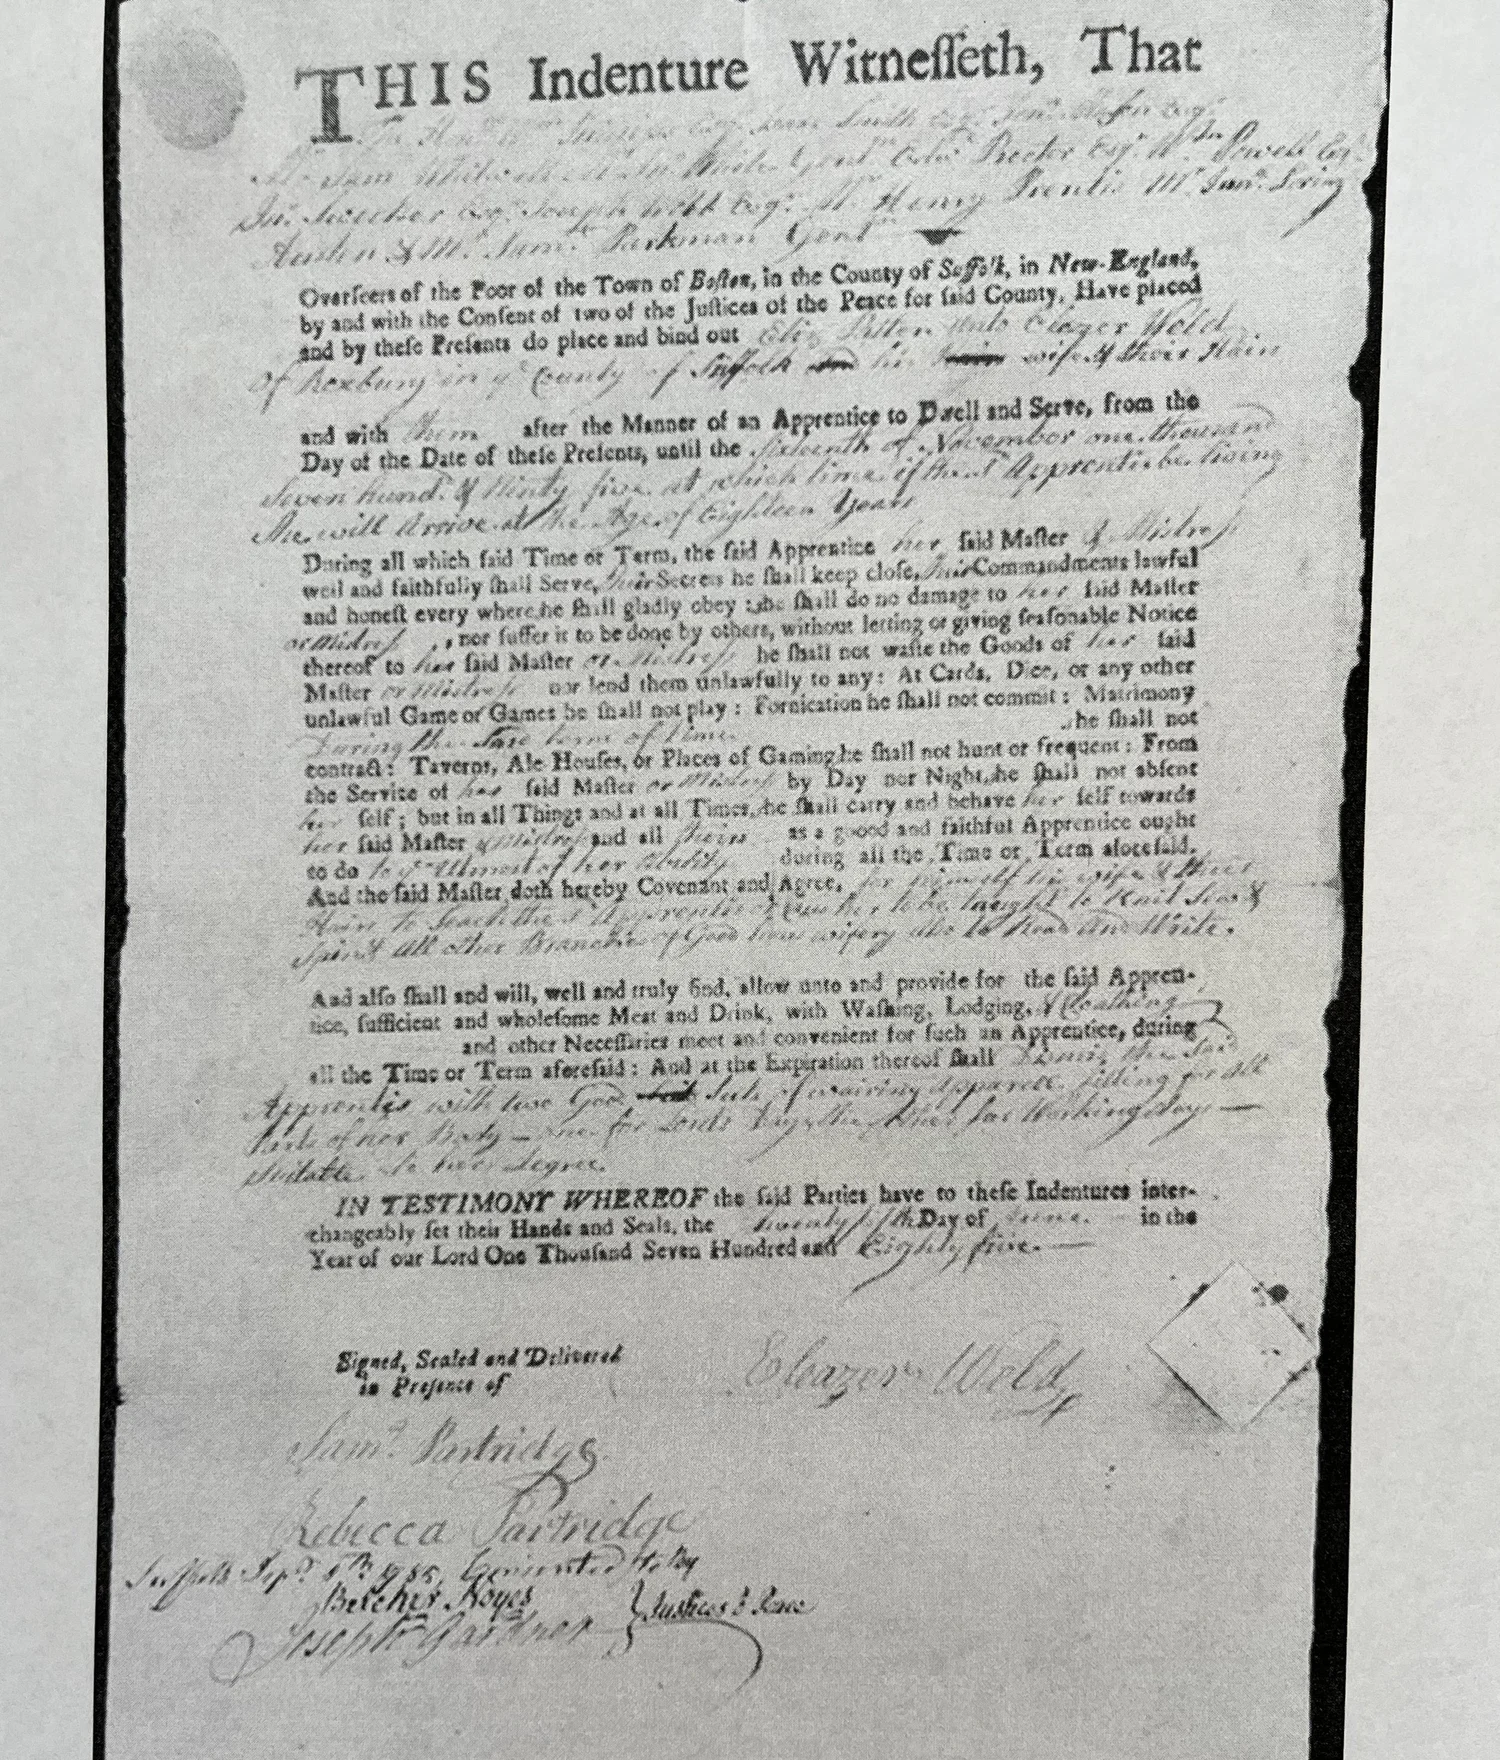 THIS Indenture Witneſſeth, That
Smith Esqr.
Saml. Gent. Edwd. Procter Esqr. Wm. Powell Esqr.
Jno. Sweetser Esqr. Joseph Webb Esqr. Mr. Henry Prentis Mr. Jona. Loring
Austin & Mr. Saml. Parkman Gentn.
Overſeers of the Poor of the Town of Boſton, in the County of Suffolk, in New-England,
by and with the Conſent of two of the Juſtices of the Peace for ſaid County, Have placed
and by theſe Preſents do place and bind out Eliz. Patten unto Eleazer Weld
of Roxbury in ye County of Suffolk his wife & their Hairs
and with them after the Manner of an Apprentice to Dwell and Serve, from the
Day of the Date of theſe Preſents, until the Sixteenth of November one thousand
Seven hundd. & Ninty five at which time if that Apprentis be living
She will Arrive at the Age of Eighteen Years
During all which ſaid Time or Term, the ſaid Apprentice her ſaid Maſter & Mistress
well and faithfully ſhall Serve, their Secrets he ſhall keep cloſe, their Commandments lawful
and honeſt every where he ſhall gladly obey : she ſhall do no damage to her ſaid Maſter
or Mistress , nor ſuffer it to be done by others, without letting or giving ſeaſonable Notice
thereof to her ſaid Maſter or Mistress he ſhall not waſte the Goods of her ſaid
Maſter or Mistress nor lend them unlawfully to any : At Cards, Dice, or any other
unlawful Game or Games he ſhall not play : Fornication he ſhall not commit : Matrimony
During the Said term of time he ſhall not
contract : Taverns, Ale-Houſes, or Places of Gaming he ſhall not hunt or frequent : From
the Service of her ſaid Maſter or Mistress by Day nor Night he ſhall not abſent
her ſelf ; but in all Things and at all Times, he ſhall carry and behave her ſelf towards
her ſaid Maſter & Mistress and all theirs as a good and faithful Apprentice ought
to do to ye Utmost of her Ability during all the Time or Term aforeſaid.
And the ſaid Maſter doth hereby Covenant and Agree, for himself his wife & their
Hairs to Teach the sd. Apprentis or Cause her to be taught to Knit Sew &
Spin & All other Branches of Good hous wifery Also to Read And Write.
And alſo ſhall and will, well and truly find, allow unto and provide for the ſaid Appren-
tice, ſufficient and wholeſome Meat and Drink, with Waſhing, Lodging, & Cloathing
and other Neceſſaries meet and convenient for ſuch an Apprentice, during
all the Time or Term aforeſaid : And at the Expiration thereof ſhall Dismis the Said
Apprentis with two Good Suits of wairing apparell fitting for all
Parts of her Body — one for Lords Days the other for Working days —
Suitable to her degree.
IN TESTIMONY WHEREOF the ſaid Parties have to theſe Indentures inter-
changeably ſet their Hands and Seals, the twenty fifth Day of June in the
Year of our Lord One Thouſand Seven Hundred and Eighty five.
Signed, Sealed and Delivered
in Preſence of
Eleazer Weld
Saml. Partridge
Rebecca Partridge
Suffolk Sepr. 5th. 1785, Consented to By
Belcher Noyes
Joseph Gardner } Justices of Peace